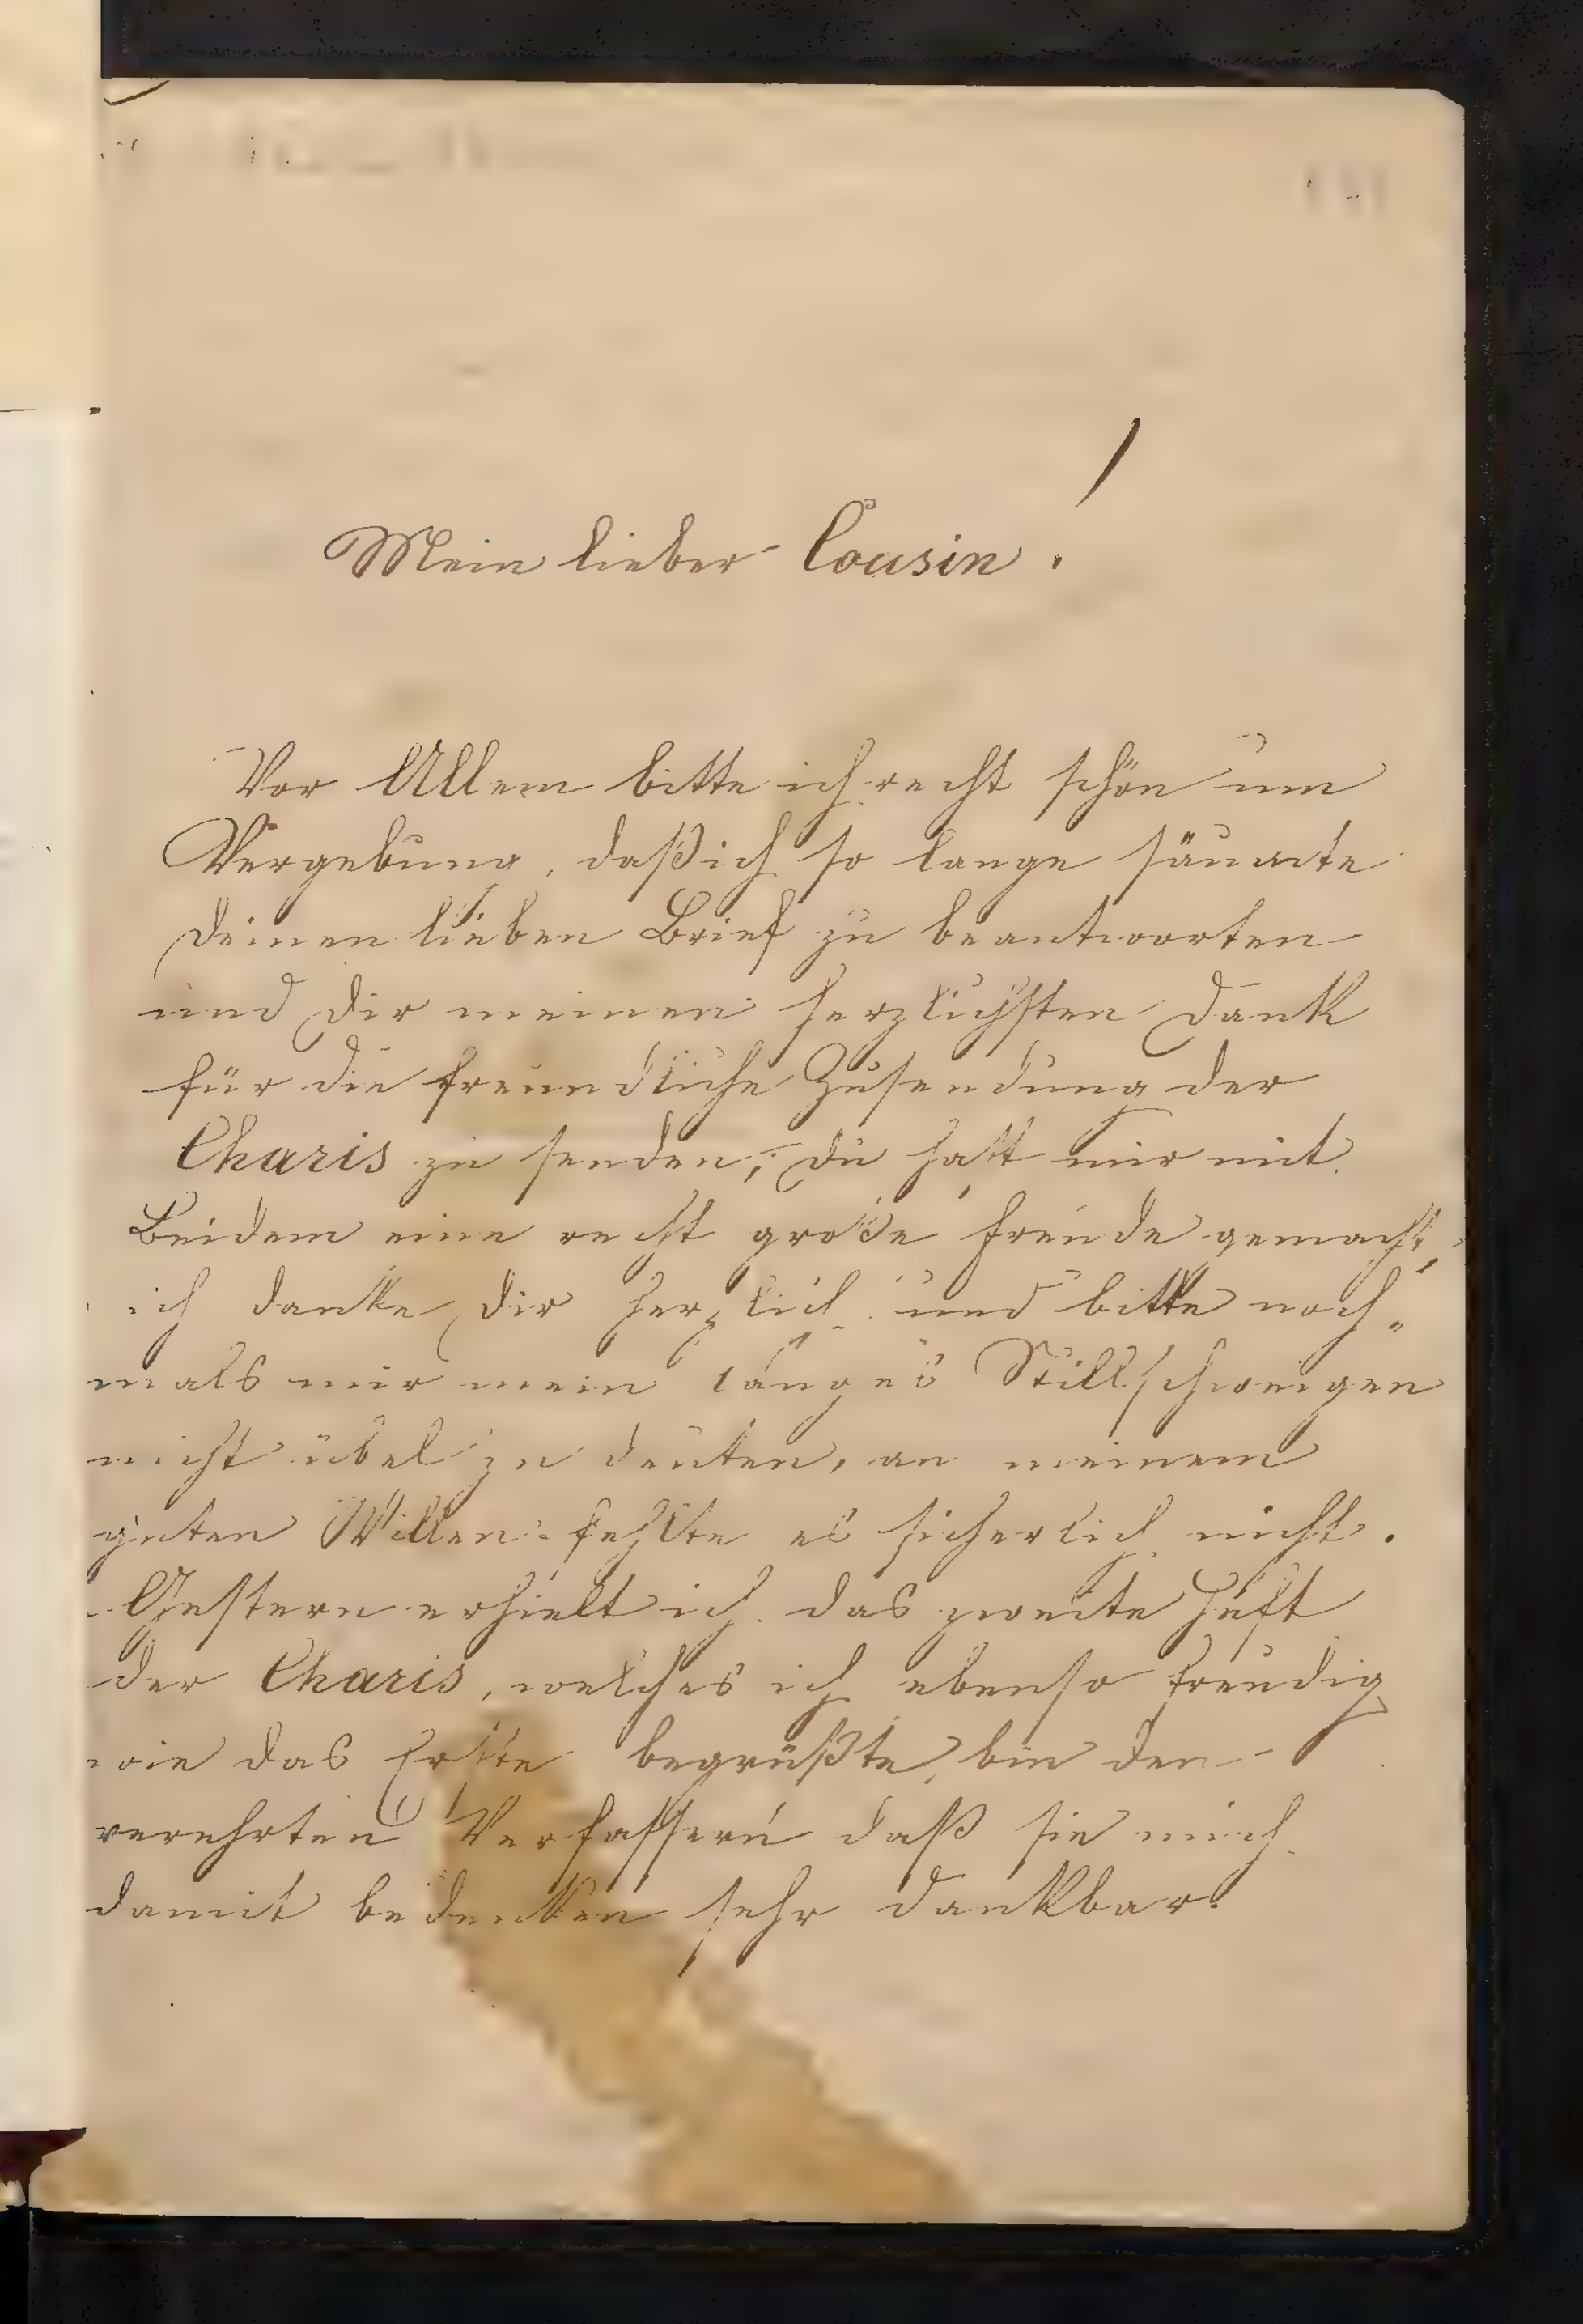 Mein lieber Cousin!
Vor Allem bitte ich recht schön um
Vergebung, daß ich so lange säumte
Deinen lieben Brief zu beantworten
und Dir meinen herzlichsten Dank
für die freundliche Zusendung der
Charis zu senden; Du hast mir mit
Beidem eine recht große Freude gemacht,
ich danke Dir herzlich und bitte noch„
mals mir mein langes Stillschweigen
nicht übel zu deuten, an meinem
guten Willen fehlte es sicherlich nicht.
Gestern erhielt ich das zweite Heft
der Charis, welches ich ebenso freudig
wie das Erste begrüßte, bin den
verehrten Verfassern daß sie mich
damit bedenken sehr dankbar.